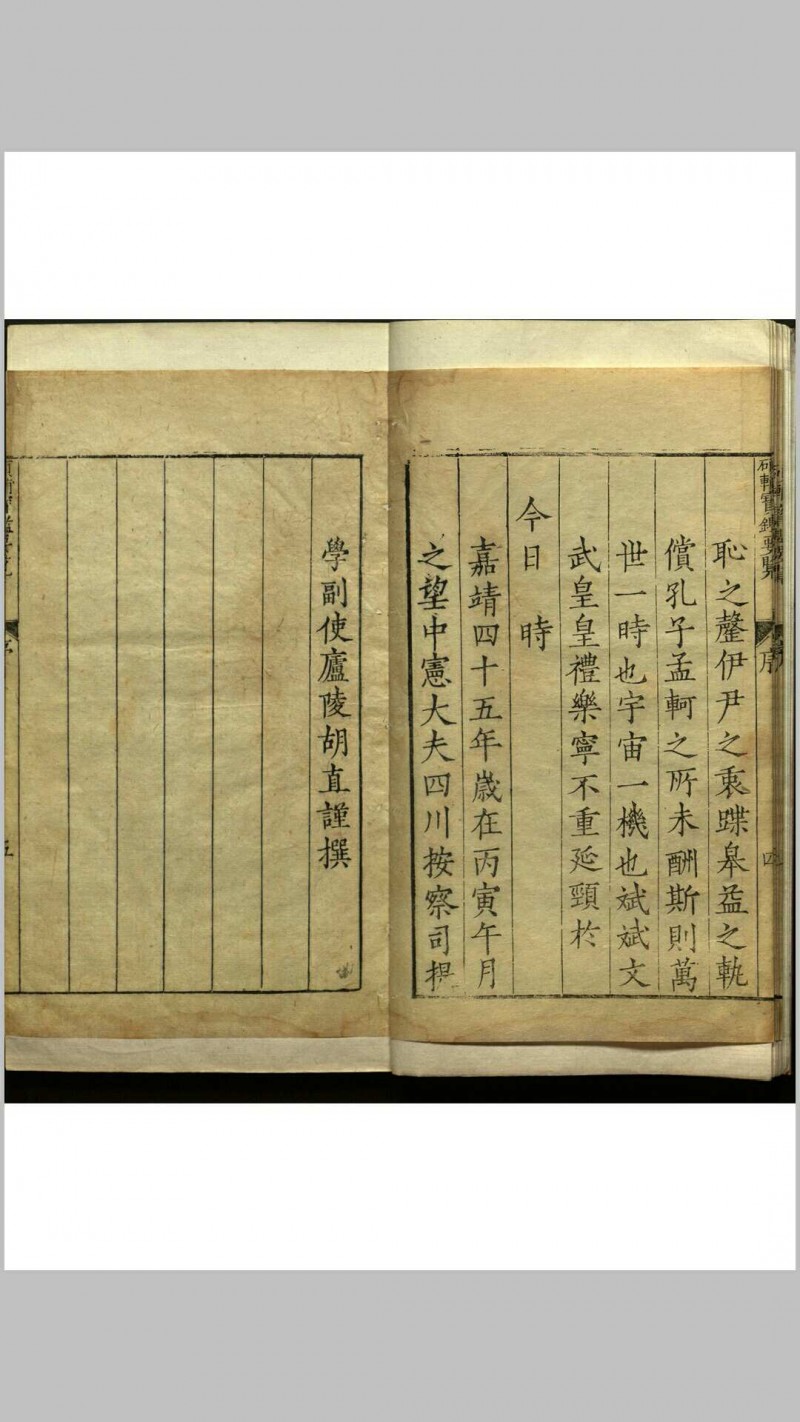 恥之釐伊尹之裵蹀皋益之軌
償孔子孟軻之所未酬斯則萬
世一時也宇宙一機也斌斌文
武皇皇禮樂寧不重延頸於
今日時
嘉靖四十五年歲在丙寅午月
之望中憲大夫四川按察司提
學副使廬陵胡直謹撰
序
四
五